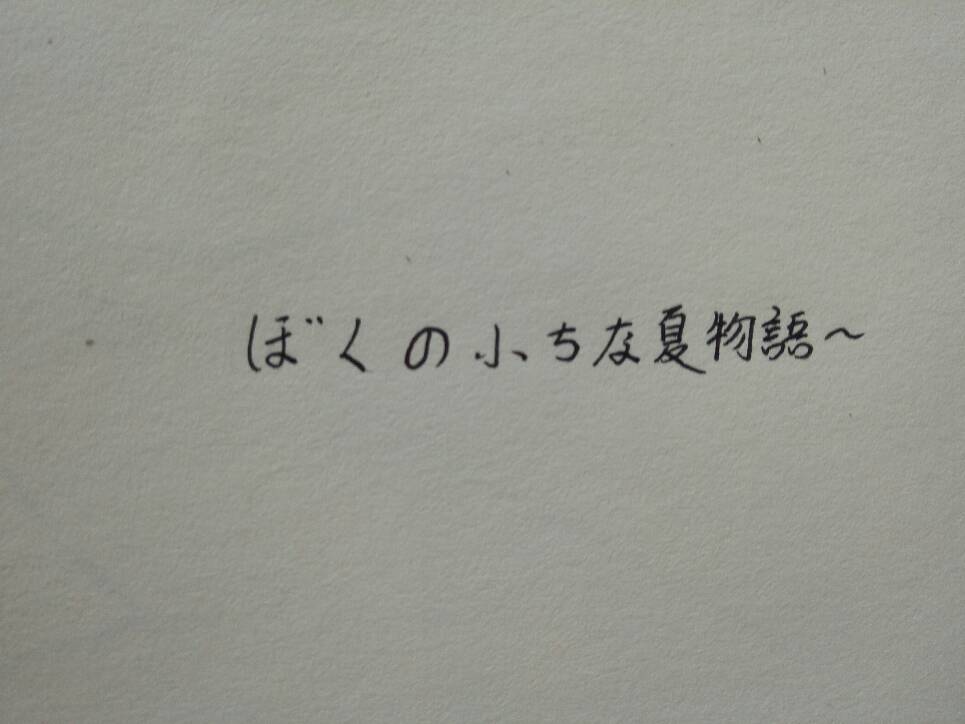 ぼくの小ちな夏物語～